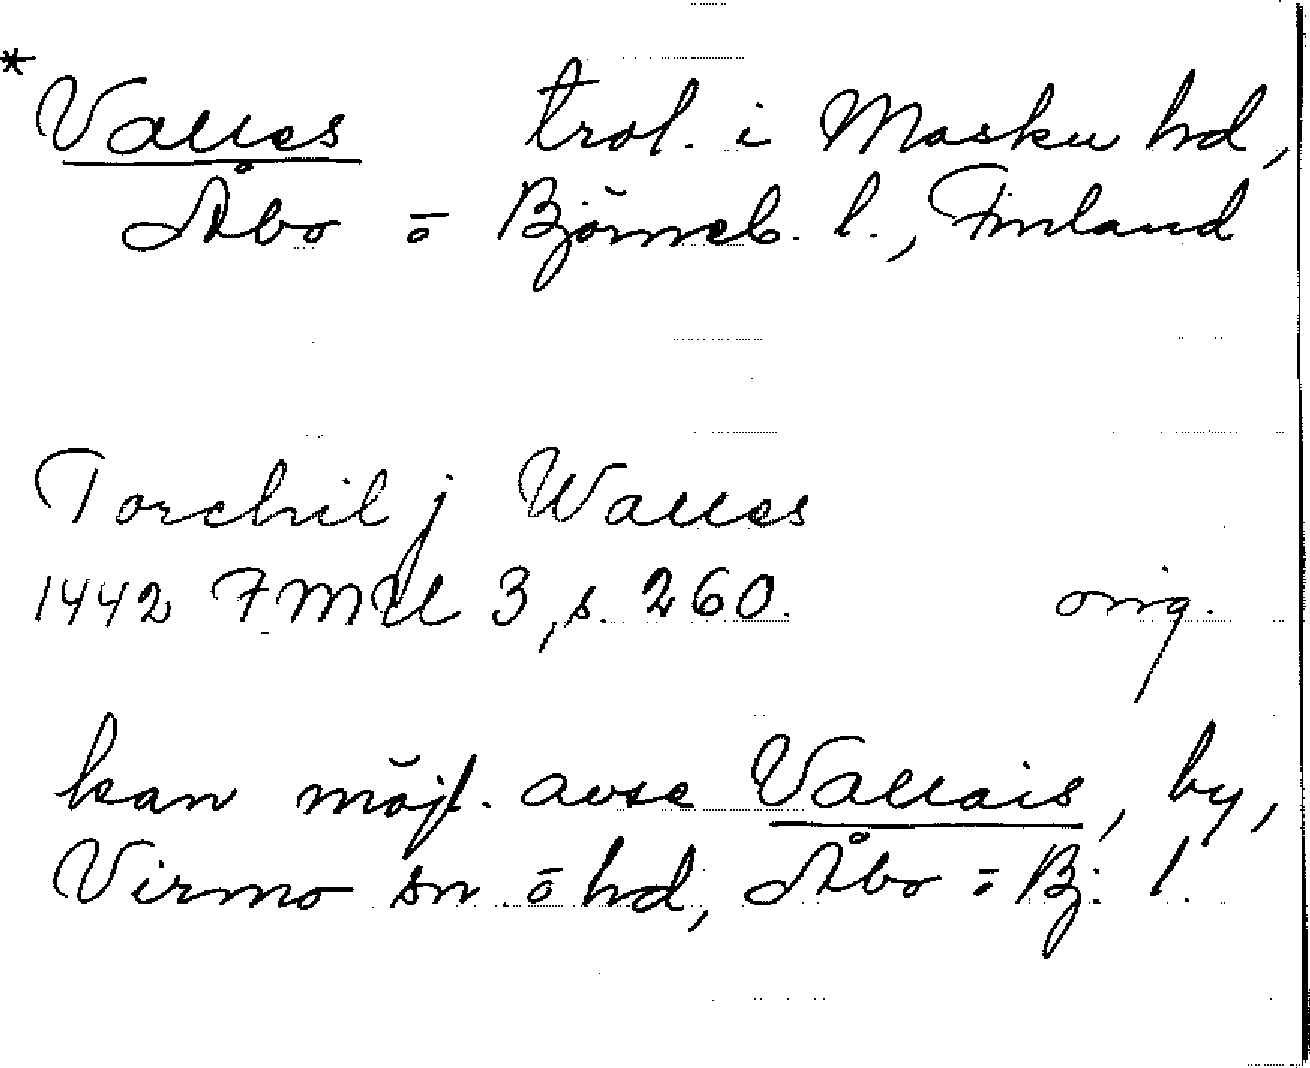 * Valles trol. i Masku hd,
Åbo o Björneb. l., Finland
Torchil j Walles
1442 FMU 3, s. 260. orig.
kan möjl. avse Vallais, by,
Virmo sn o hd, Åbo o Bj. l.